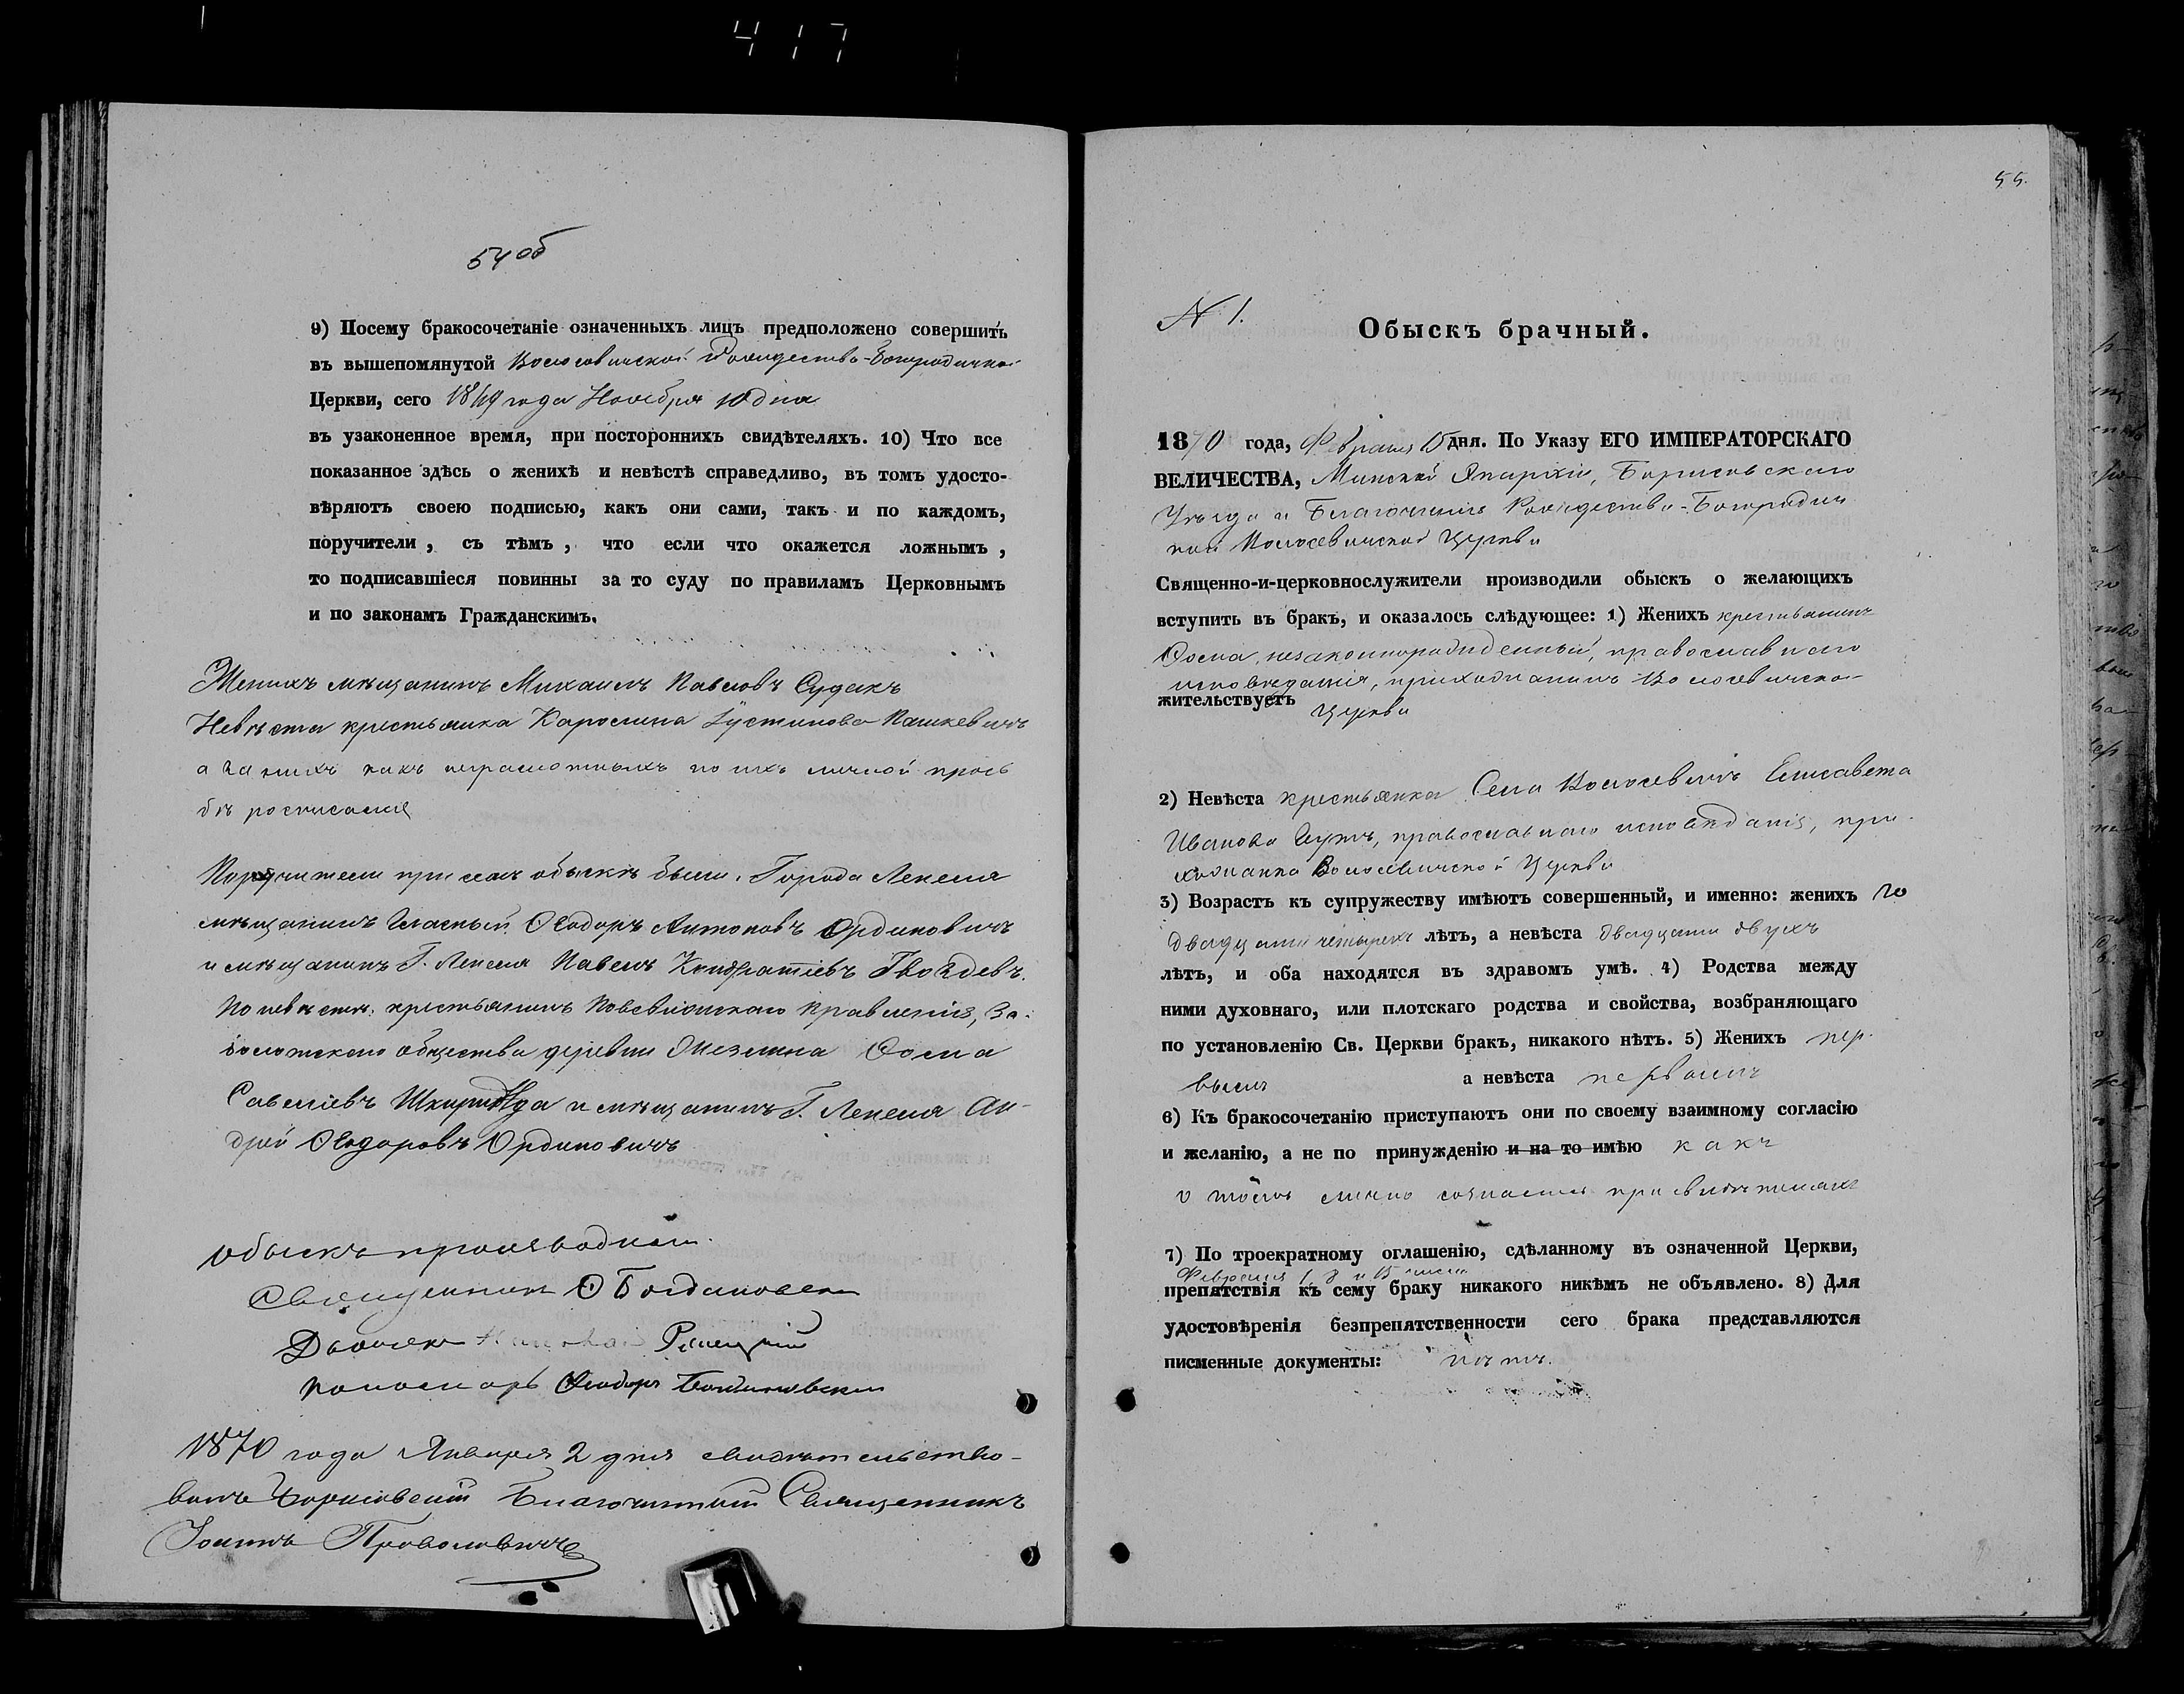 417
54 об
9) Посему бракосочетаніе означенныхъ лицъ предположено совершить
въ вышепомянутой Волосовичской Рождество-Богородичной
Церкви, сего 1869 года Ноября 10 дня
въ узаконенное время, при постороннихъ свидѣтеляхъ. 10) Что все
показанное здѣсь о женихѣ и невѣстѣ справедливо, въ томъ удосто-
вѣряютъ своею подписью, какъ они сами, такъ и по каждомъ,
поручители, съ тѣмъ, что если что окажется ложнымъ,
то подписавшіеся повинны за то суду по правиламъ Церковнымъ
и по законамъ Гражданскимъ.
Женихъ мѣщанинъ Михаилъ Павловъ Судакъ
Невѣста крестьянка Каролина Іустинова Пашкевичъ
а за нихъ какъ неграмотныхъ по ихъ личной прозь
бѣ росписался
Поручители при семъ обыскѣ были: Города Лепеля
мѣщанинъ Гласный Ѳеодоръ Антоновъ Ординовичъ
и мѣщанинъ Г. Лепеля Павелъ Кондратіевъ Гвоздевъ.
По невѣстѣ: крестьянинъ правленія, За-
болотскаго общества деревни Ѳома
Савеліевъ и мѣщанинъ Г. Лепеля Ан-
дрей Ѳеодоровъ Ординовичъ
обыскъ производили:
Священникъ Богдановскій
Дьячекъ
Пономарь Ѳеодоръ Богдановскій
1870 года Января 2 дня свидѣтельство-
валъ Борисовскій Благочинный Священникъ
Іоаннъ
55.
N 1.
Обыскъ брачный.
1870 года, Февраля 15 дня. По Указу ЕГО ИМПЕРАТОРСКАГО
ВЕЛИЧЕСТВА, Минской Эпархіи, Борисовскаго
Уѣзда и Благочинія Рождество-Богородич
ной Волосевичской Церкви
Священно-и-церковнослужители производили обыскъ о желающихъ
вступить въ бракъ, и оказалось слѣдующее: 1) Женихъ крестьянинъ
Ѳома, незаконнорожденный, православнаго
исповѣданія, прихожанинъ Волосевичской
жительствуетъ Церкви
2) Невѣста крестьянка Села Волосевичъ Елисавета
Иванова православнаго исповѣданія, при-
хожанка Волосевичской Церкви
3) Возрастъ къ супружеству имѣютъ совершенный, и именно: женихъ
двадцати четырехъ лѣтъ, а невѣста двадцати двухъ
лѣтъ, и оба находятся въ здравомъ умѣ. 4) Родства между
ними духовнаго, или плотскаго родства и свойства, возбраняющаго
по установленію Св. Церкви бракъ, никакого нѣтъ. 5) Женихъ пер-
вымъ а невѣста первымъ
6) Къ бракосочетанію приступаютъ они по своему взаимному согласію
и желанію, а не по принужденію и на то имѣю какъ
о томъ лично сознались при свидѣтеляхъ
7) По троекратному оглашенію, сдѣланному въ означенной Церкви,
Февраля 1, 8 и 15 числа
препятствія къ сему браку никакого никѣмъ не объявлено. 8) Для
удостовѣренія безпрепятственности сего брака представляются
писменные документы: нѣтъ.